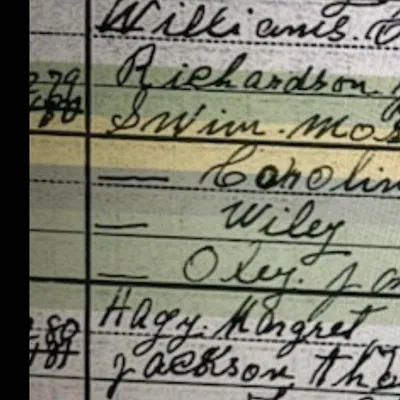 Williams.
279 Richardson.
Swim. Mos
— Carolin
— Wiley
— Oley. J
280 Hagy. Margret
Jackson Tho